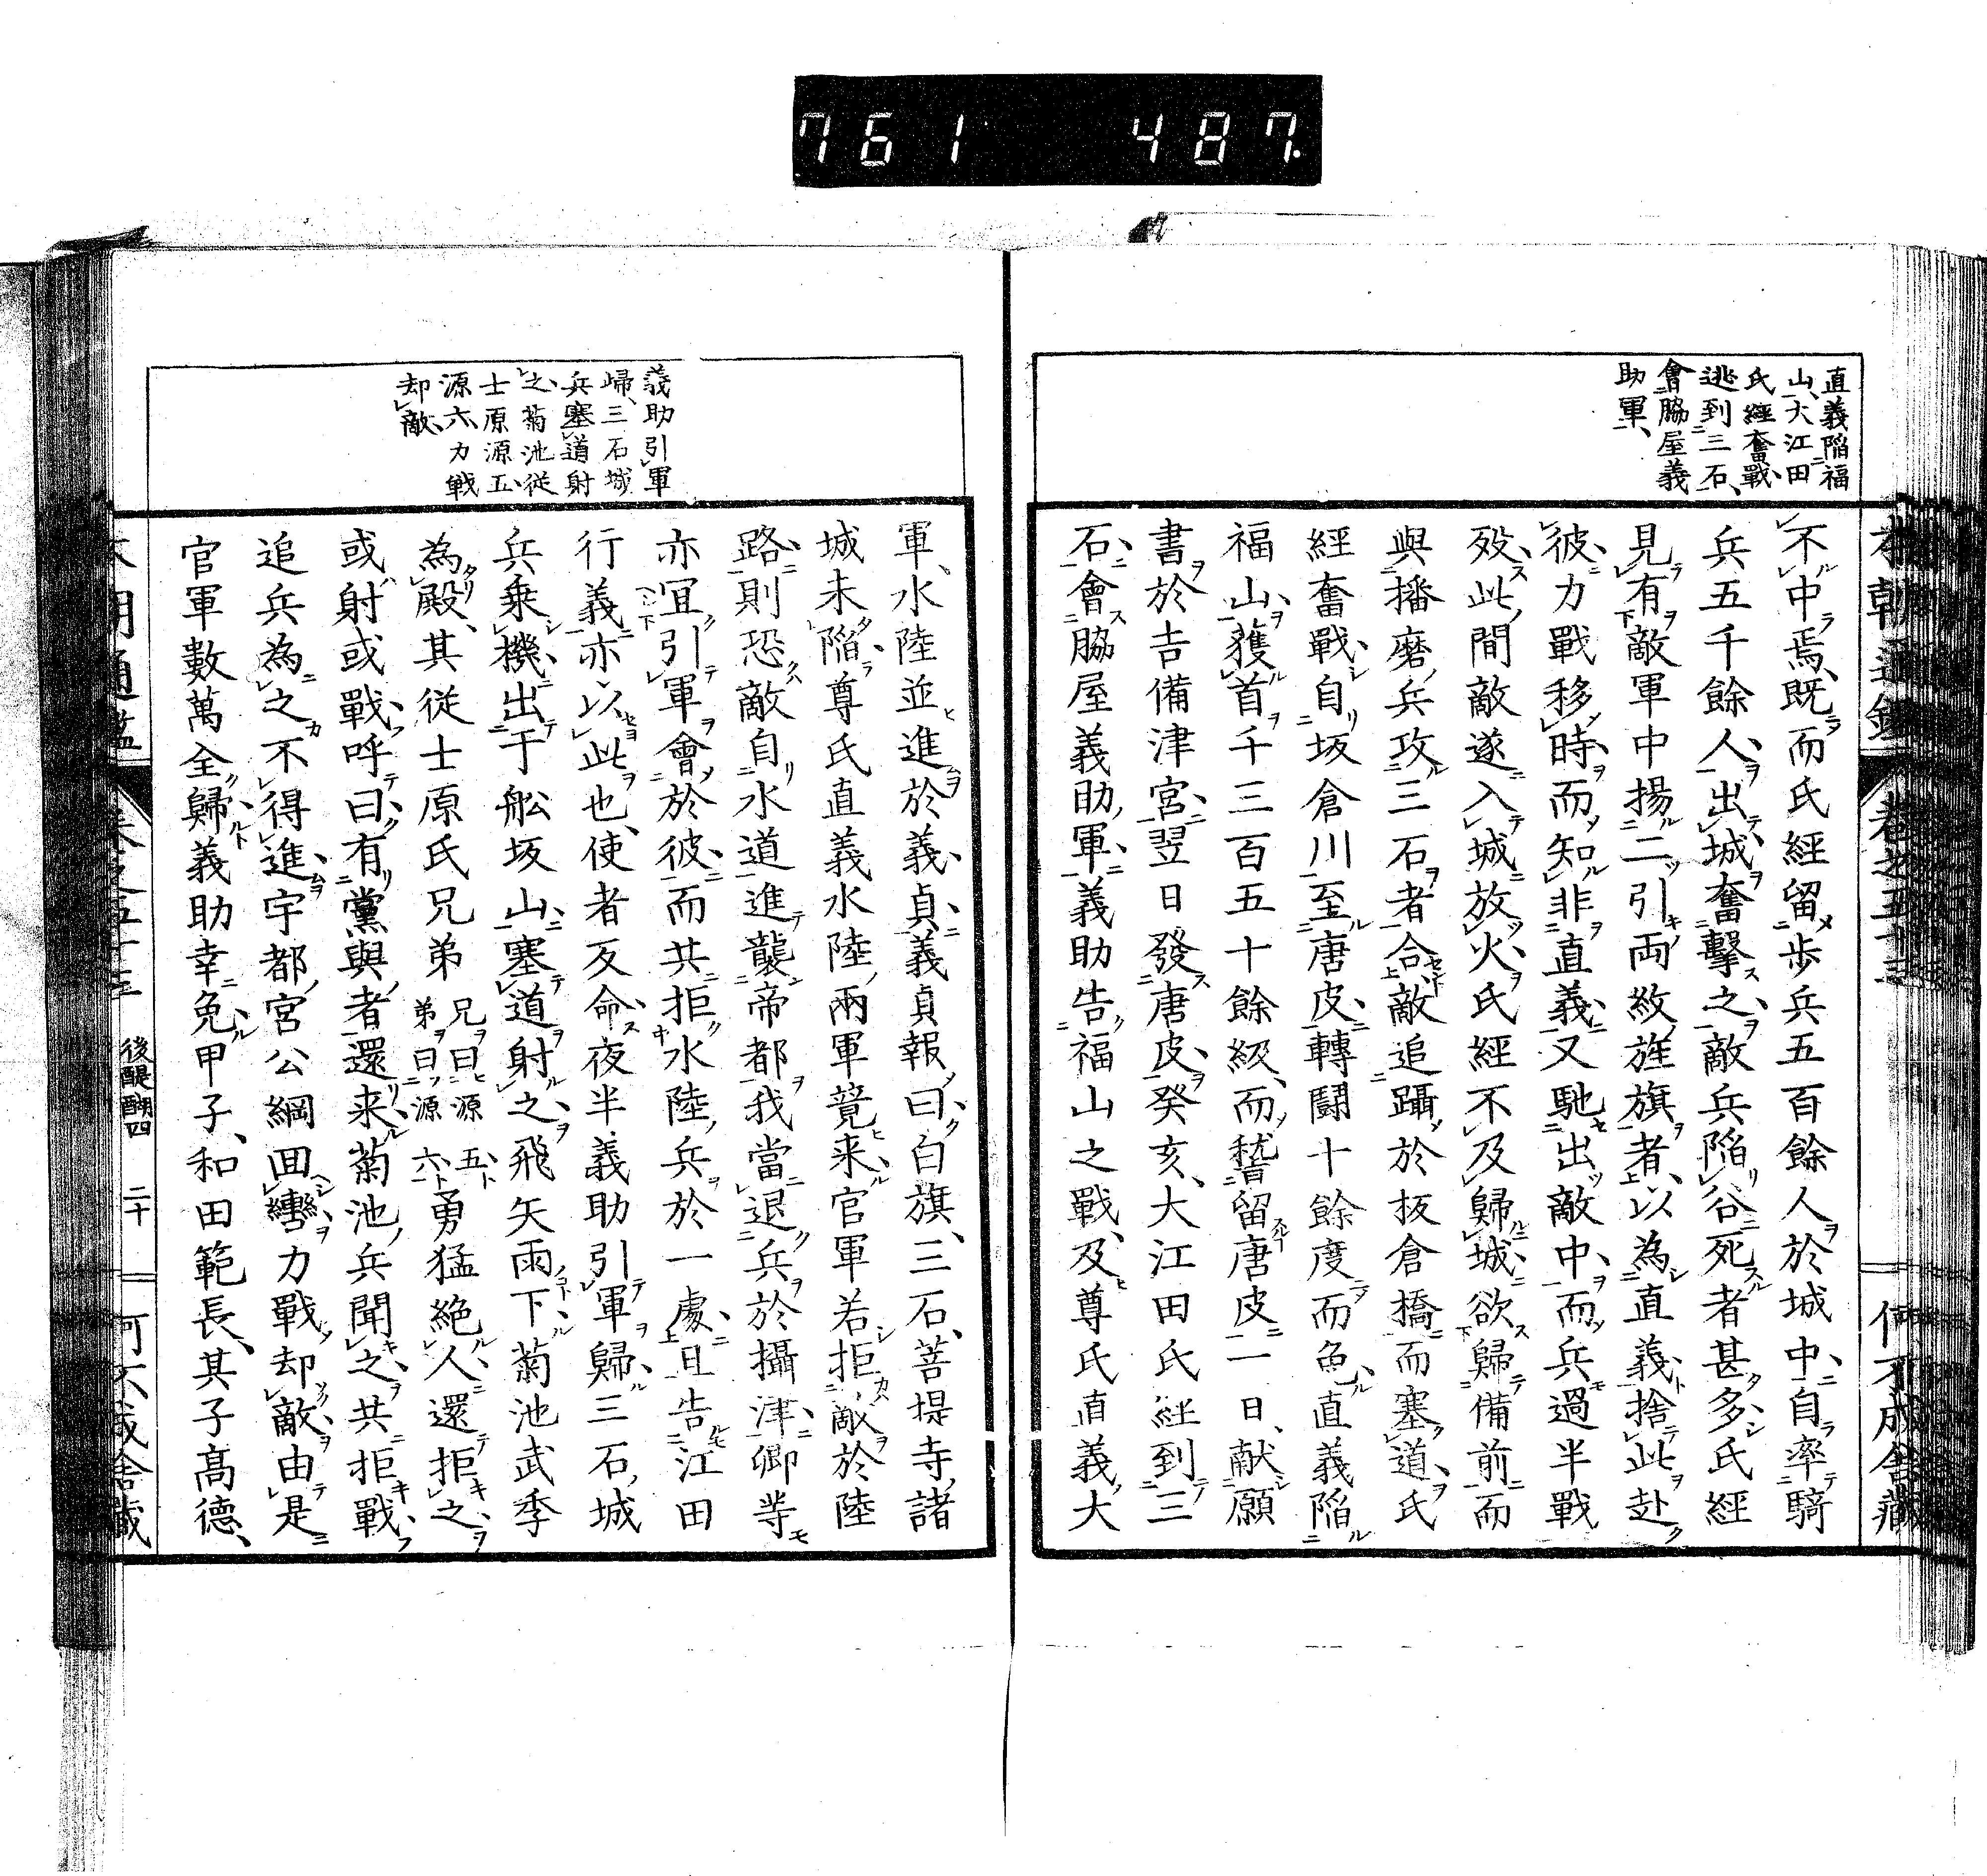 761 487.
本朝通鑑 卷之五十三 何不成舍藏
直義陷福
山、大江田
氏經奮戰、
逃到三石、
會脇屋義
助軍、
不中焉、既而氏經留步兵五百餘人於城中、自率騎
兵五千餘人、出城奮擊之、敵兵陷谷死者甚多、氏經
見有敵軍中揚二引両紋旌旗者、以為直義、捨此赴
彼、力戰移時、而知非直義、又馳出敵中、而兵過半戰
歿、此間敵遂入城放火、氏經不及歸城、欲歸備前、而
與播磨兵攻三石者合、敵追躡於板倉橋、而塞道、氏
經奮戰、自坂倉川至唐皮、轉鬪十餘度、而免、直義陷
福山、獲首千三百五十餘級、而稽留唐皮一日、献願
書於吉備津宮、翌日發唐皮、癸亥、大江田氏經到三
石、會脇屋義助軍、義助告福山之戰、及尊氏直義大
義助引軍
歸三石城
兵塞道射
之、菊池從
士原源五、
源六力戰
却敵、
軍、水陸並進於義貞、義貞報曰、白旗、三石、菩提寺、諸
城未陷、尊氏直義水陸兩軍競来、官軍若拒敵於陸
路、則恐敵自水道進襲帝都、我當退兵於攝津、卿等
亦宜引軍會於彼、而共拒水陸兵於一處、且告江田
行義亦以此也、使者反命、夜半義助引軍歸三石、城
兵乘機出于舩坂山、塞道射之、飛矢雨下、菊池武季
為殿、其從士原氏兄弟兄曰源五、弟曰源六、勇猛絶人、還拒之、
或射或戰、呼曰、有黨與者還来、菊池兵聞之、共拒戰、
追兵為之不得進、宇都宮公綱回轡力戰、却敵、由是
官軍數萬全歸、義助幸免、甲子、和田範長、其子高德、
後醍醐四 二十